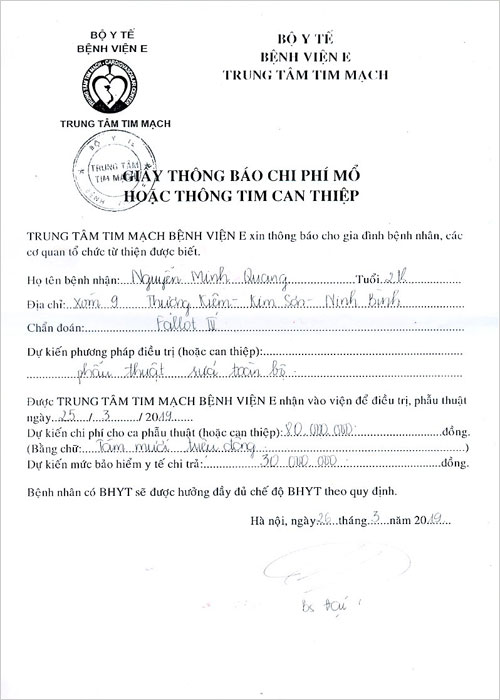 BỘ Y TẾ
BỆNH VIỆN E
TRUNG TÂM TIM MẠCH
BỘ Y TẾ
BỆNH VIỆN E
TRUNG TÂM TIM MẠCH
TRUNG TÂM
TIM MẠCH
GIẤY THÔNG BÁO CHI PHÍ MỔ
HOẶC THÔNG TIM CAN THIỆP
TRUNG TÂM TIM MẠCH BỆNH VIỆN E xin thông báo cho gia đình bệnh nhân, các
cơ quan tổ chức từ thiện được biết.
Họ tên bệnh nhân: Nguyễn Minh Quang Tuổi 2th
Địa chỉ: xóm 9 Thượng Kiệm - Kim Sơn - Ninh Bình
Chẩn đoán: Fallot IV
Dự kiến phương pháp điều trị (hoặc can thiệp):
phẫu thuật sửa toàn bộ
Được TRUNG TÂM TIM MẠCH BỆNH VIỆN E nhận vào viện để điều trị, phẫu thuật
ngày 25 / 3 / 2019
Dự kiến chi phí cho ca phẫu thuật (hoặc can thiệp): 80.000.000 đồng.
(Bằng chữ: Tám mươi triệu đồng )
Dự kiến mức bảo hiểm y tế chi trả: 30.000.000 đồng.
Bệnh nhân có BHYT sẽ được hưởng đầy đủ chế độ BHYT theo quy định.
Hà nội, ngày 26 tháng 3 năm 2019
Bs Đại